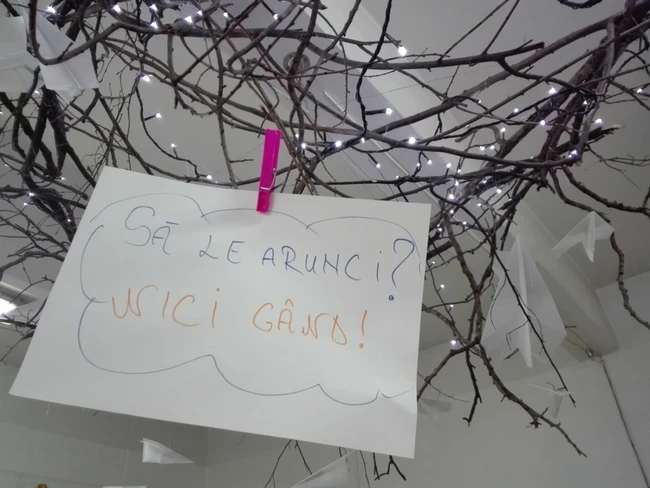 SĂ LE ARUNCi?
NICi GÂND!